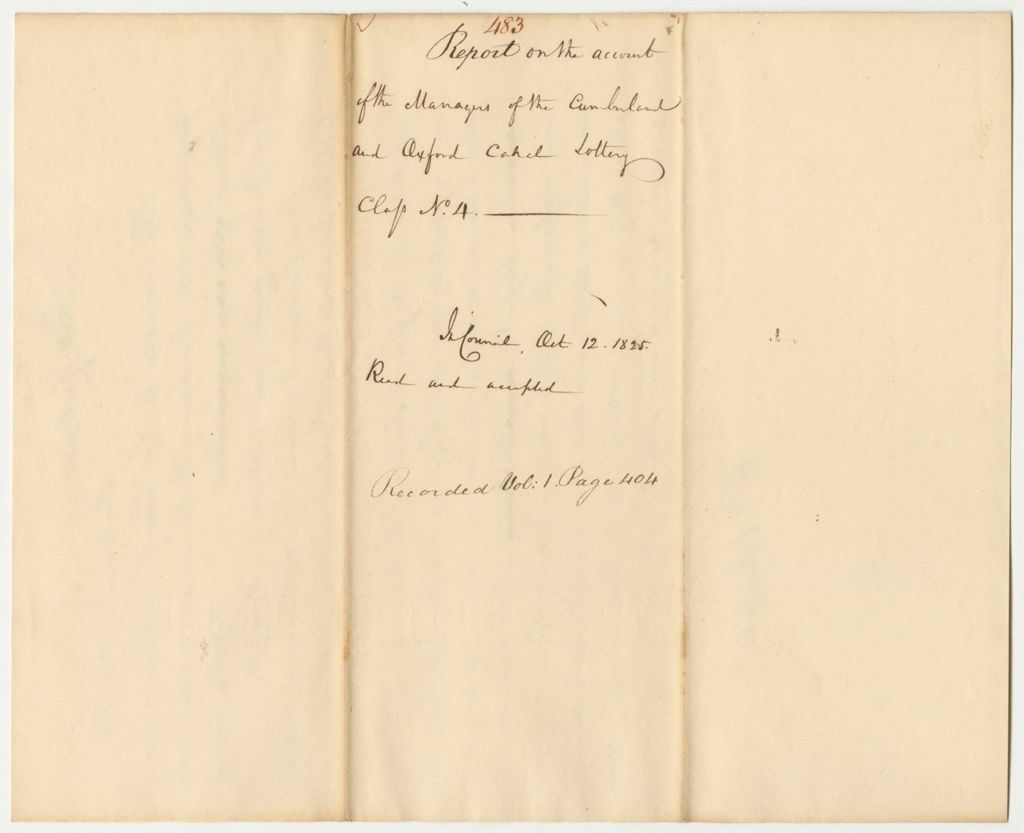 483
Report on the account
of the Managers of the Cumberland
and Oxford Canal Lottery
Class No. 4.
In Council, Oct 12. 1825.
Read and accepted
Recorded Vol: 1. Page 404